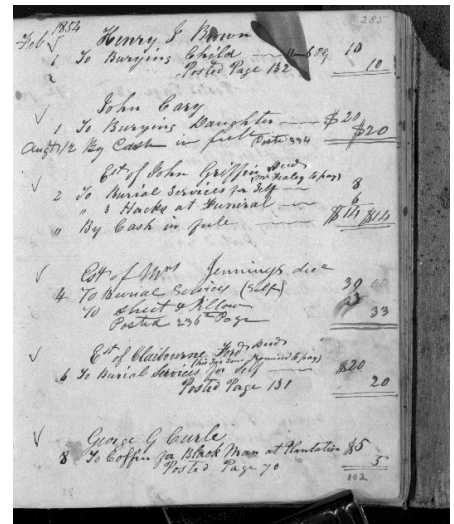 285
1854
Feb Henry J Brown
1 To Burying Child 10
Posted Page 132 10
John Cary
1 To Burying Daughter $20
Augt 12 By Cash in full $20
Est of John Griffin Decd
2 To Burial Services for Self 8
" 3 Hacks at Funeral 6
" By Cash in full $14 $14
Est of Mrs Jennings decd
4 To Burial Services (Self) 30
To Sheet & Pillow 3
Posted 236th Page 33
Est of Claibourne Ford Decd
(his son promised to pay)
6 To Burial Services for Self $20
Posted Page 131 20
George G Curle
8 To Coffin for Black Man at Plantation $5
Posted Page 70 5
102